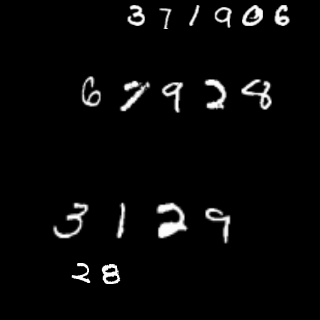 371906
67928
3129
28